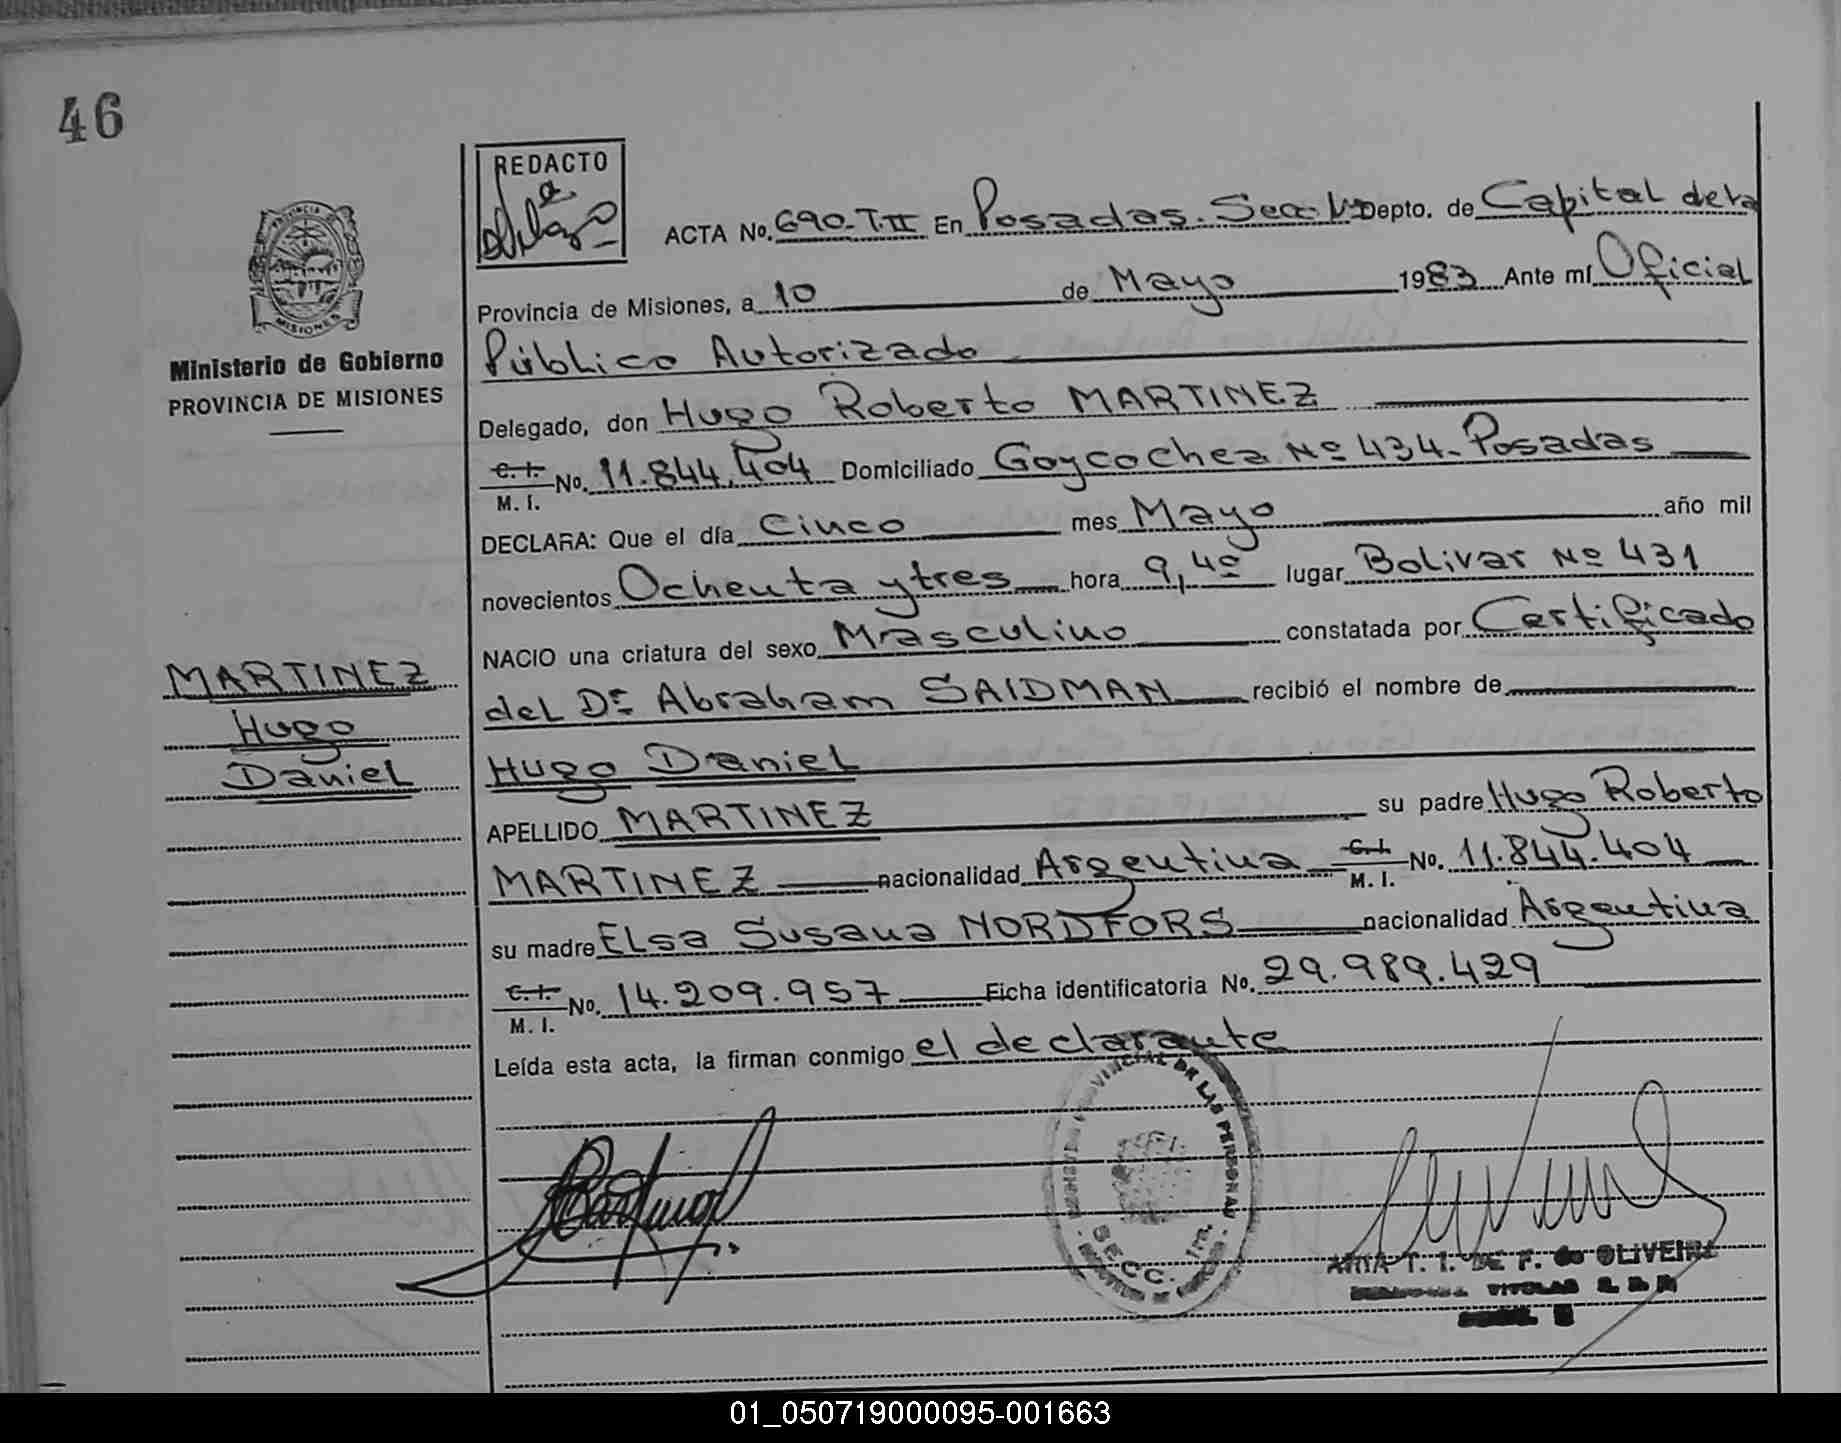 46
REDACTO
ACTA No. 690-T.II En Posadas. Secc. 1ª Depto. de Capital de la
Provincia de Misiones, a 10 de Mayo 1983 Ante mí Oficial
MISIONES
Ministerio de Gobierno
PROVINCIA DE MISIONES
Público Autorizado
Delegado, don Hugo Roberto MARTINEZ
C. I.
M. I. No. 11.844.404 Domiciliado Goycochea Nº 434- Posadas
DECLARA: Que el día Cinco mes Mayo año mil
novecientos Ochenta y tres hora 9,40 lugar Bolivar Nº 431
NACIO una criatura del sexo Masculino constatada por Certificado
MARTINEZ
Hugo
Daniel
del Dr Abraham SAIDMAN recibió el nombre de
Hugo Daniel
APELLIDO MARTINEZ su padre Hugo Roberto
MARTINEZ nacionalidad Argentina C. I.
M. I. No. 11.844.404
su madre Elsa Susana NORDFORS nacionalidad Argentina
C. I.
M. I. No. 14.209.957 Ficha identificatoria No. 29.989.429
Leída esta acta, la firman conmigo el declarante
PROVINCIAL DE LAS PERSONAS
SECC. 1ra.
T. I. DE F. de OLIVEIRA
01_050719000095-001663